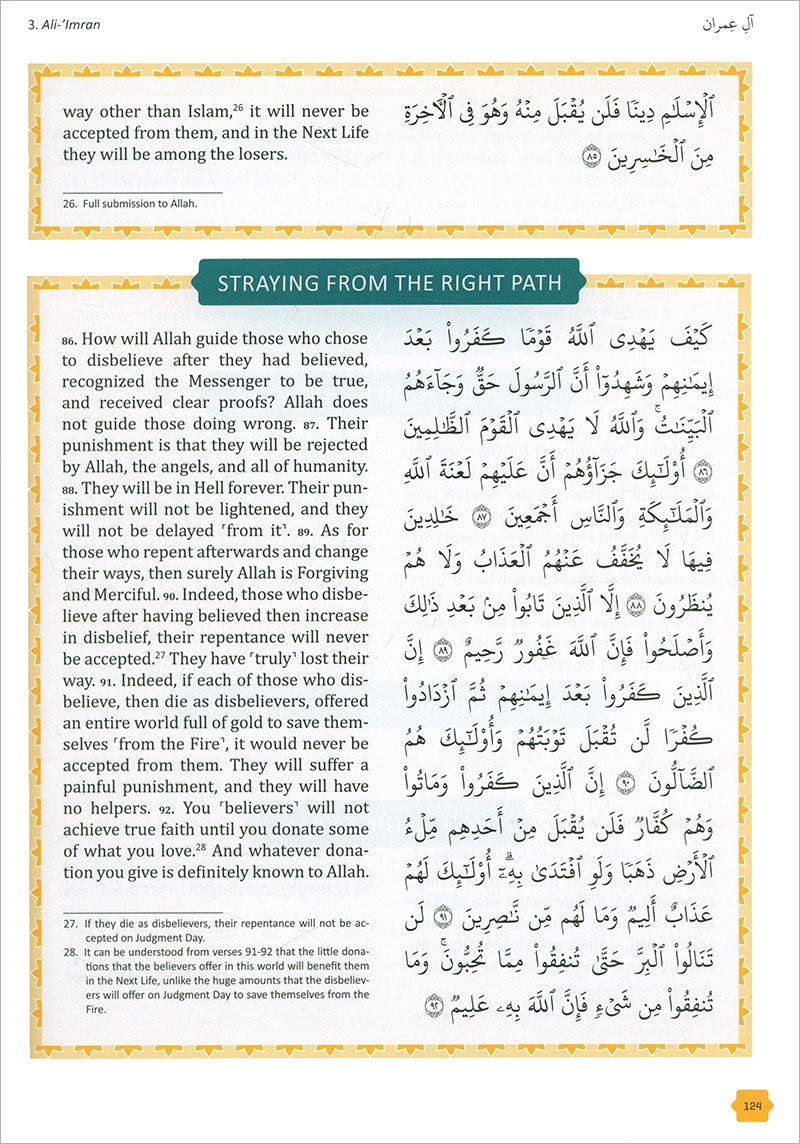 3. Ali-'Imran
آلِ عِمران
way other than Islam,²⁶ it will never be
accepted from them, and in the Next Life
they will be among the losers.
26. Full submission to Allah.
ٱلْإِسْلَـٰمِ دِينًا فَلَن يُقْبَلَ مِنْهُ وَهُوَ فِى ٱلْـَٔاخِرَةِ
مِنَ ٱلْخَـٰسِرِينَ ٨٥
STRAYING FROM THE RIGHT PATH
86. How will Allah guide those who chose
to disbelieve after they had believed,
recognized the Messenger to be true,
and received clear proofs? Allah does
not guide those doing wrong. 87. Their
punishment is that they will be rejected
by Allah, the angels, and all of humanity.
88. They will be in Hell forever. Their pun-
ishment will not be lightened, and they
will not be delayed ˹from it˺. 89. As for
those who repent afterwards and change
their ways, then surely Allah is Forgiving
and Merciful. 90. Indeed, those who disbe-
lieve after having believed then increase
in disbelief, their repentance will never
be accepted.²⁷ They have ˹truly˺ lost their
way. 91. Indeed, if each of those who dis-
believe, then die as disbelievers, offered
an entire world full of gold to save them-
selves ˹from the Fire˺, it would never be
accepted from them. They will suffer a
painful punishment, and they will have
no helpers. 92. You ˹believers˺ will not
achieve true faith until you donate some
of what you love.²⁸ And whatever dona-
tion you give is definitely known to Allah.
27. If they die as disbelievers, their repentance will not be ac-
cepted on Judgment Day.
28. It can be understood from verses 91-92 that the little dona-
tions that the believers offer in this world will benefit them
in the Next Life, unlike the huge amounts that the disbeliev-
ers will offer on Judgment Day to save themselves from the
Fire.
كَيْفَ يَهْدِى ٱللَّهُ قَوْمًا كَفَرُوا۟ بَعْدَ
إِيمَـٰنِهِمْ وَشَهِدُوٓا۟ أَنَّ ٱلرَّسُولَ حَقٌّ وَجَآءَهُمُ
ٱلْبَيِّنَـٰتُ ۚ وَٱللَّهُ لَا يَهْدِى ٱلْقَوْمَ ٱلظَّـٰلِمِينَ
٨٦ أُو۟لَـٰٓئِكَ جَزَآؤُهُمْ أَنَّ عَلَيْهِمْ لَعْنَةَ ٱللَّهِ
وَٱلْمَلَـٰٓئِكَةِ وَٱلنَّاسِ أَجْمَعِينَ ٨٧ خَـٰلِدِينَ
فِيهَا لَا يُخَفَّفُ عَنْهُمُ ٱلْعَذَابُ وَلَا هُمْ
يُنظَرُونَ ٨٨ إِلَّا ٱلَّذِينَ تَابُوا۟ مِنۢ بَعْدِ ذَٰلِكَ
وَأَصْلَحُوا۟ فَإِنَّ ٱللَّهَ غَفُورٌ رَّحِيمٌ ٨٩ إِنَّ
ٱلَّذِينَ كَفَرُوا۟ بَعْدَ إِيمَـٰنِهِمْ ثُمَّ ٱزْدَادُوا۟
كُفْرًا لَّن تُقْبَلَ تَوْبَتُهُمْ وَأُو۟لَـٰٓئِكَ هُمُ
ٱلضَّآلُّونَ ٩٠ إِنَّ ٱلَّذِينَ كَفَرُوا۟ وَمَاتُوا۟
وَهُمْ كُفَّارٌ فَلَن يُقْبَلَ مِنْ أَحَدِهِم مِّلْءُ
ٱلْأَرْضِ ذَهَبًا وَلَوِ ٱفْتَدَىٰ بِهِۦٓ ۗ أُو۟لَـٰٓئِكَ لَهُمْ
عَذَابٌ أَلِيمٌ وَمَا لَهُم مِّن نَّـٰصِرِينَ ٩١ لَن
تَنَالُوا۟ ٱلْبِرَّ حَتَّىٰ تُنفِقُوا۟ مِمَّا تُحِبُّونَ ۚ وَمَا
تُنفِقُوا۟ مِن شَىْءٍ فَإِنَّ ٱللَّهَ بِهِۦ عَلِيمٌ ٩٢
124